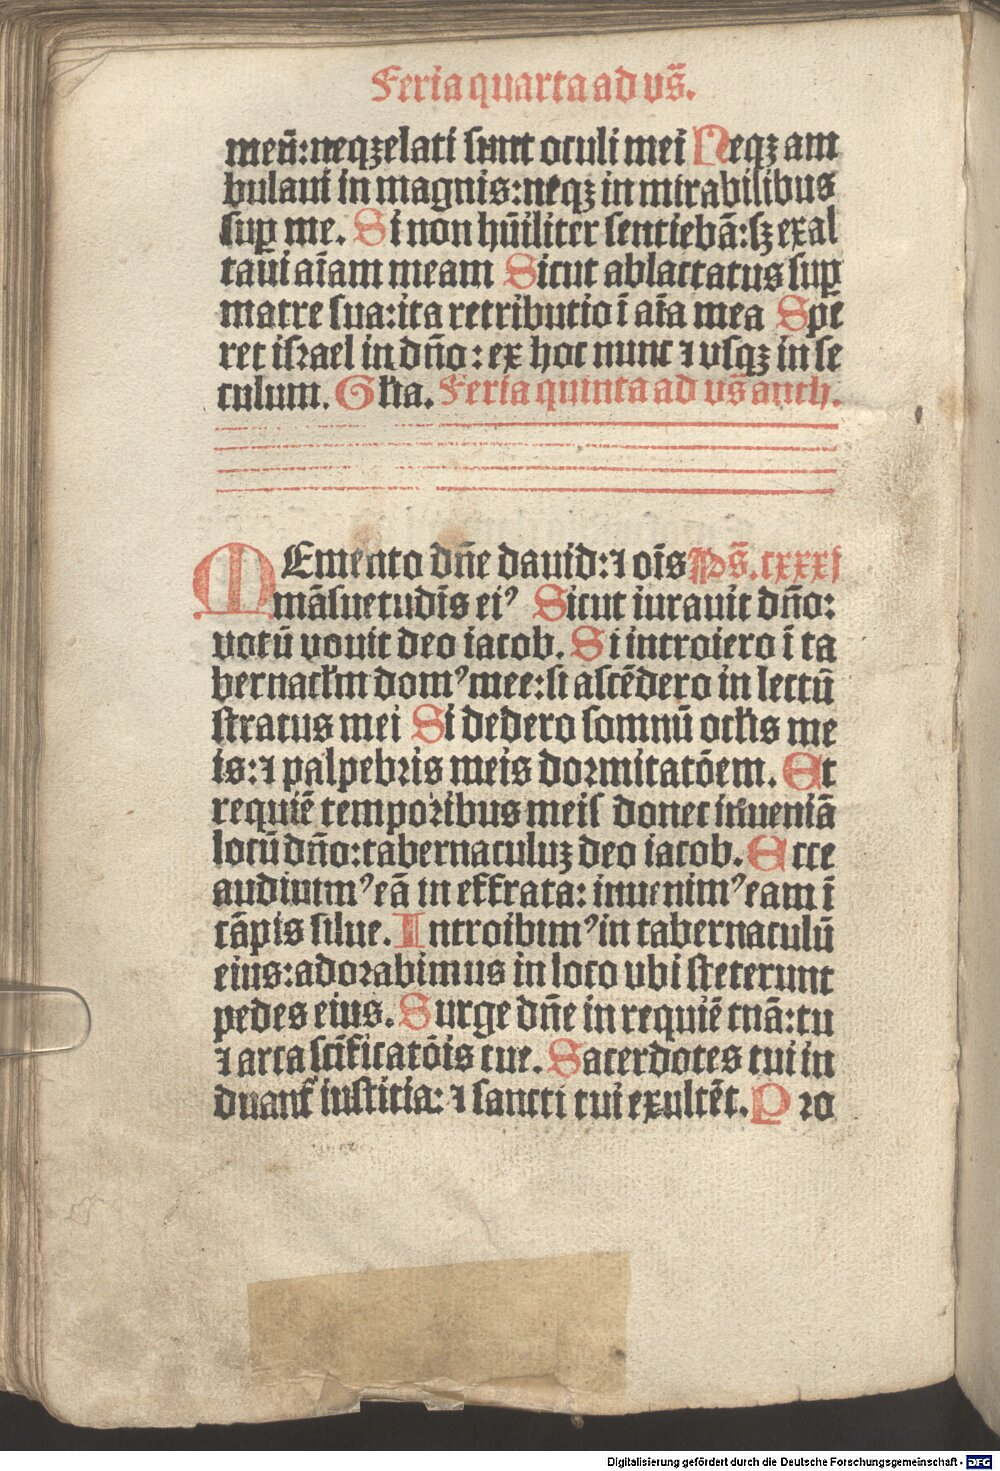 Feria quarta ad vs̄.
meū: neqꝫ elati sunt oculi mei Neqꝫ am
bulaui in magnis: neqꝫ in mirabilibus
suꝑ me. Si non hūiliter sentiebā: sꝫ exal
taui aīam meam Sicut ablactatus suꝑ
matre sua: ita retributio ī aīa mea Spe
ret iſrael in dño: ex hoc nunc ⁊ vsqꝫ in se
culum. Glīa. Feria quinta ad vs̄ anth.
MEmento dñe dauid: ⁊ oīs Ps̄. cxxxi
māsuetudīs eiꝰ Sicut iurauit dño:
votū vouit deo iacob. Si introiero ī ta
bernacłm domꝰ mee: si ascēdero in lectū
stratus mei Si dedero somnū ocłis me
is: ⁊ palpebris meis dormitatōem. Et
requiē temporibus meis donec inueniā
locū dño: tabernaculuꝫ deo iacob. Ecce
audiuimꝰ eā in effrata: inuenimꝰ eam ī
cāpis silue. Introibimꝰ in tabernaculū
eius: adorabimus in loco vbi steterunt
pedes eius. Surge dñe in requiē tuā: tu
⁊ arca scīficatōis tue. Sacerdotes tui in
duant᷑ iusticia: ⁊ sancti tui exultēt. Pro
Digitalisierung gefördert durch die Deutsche Forschungsgemeinschaft - DFG